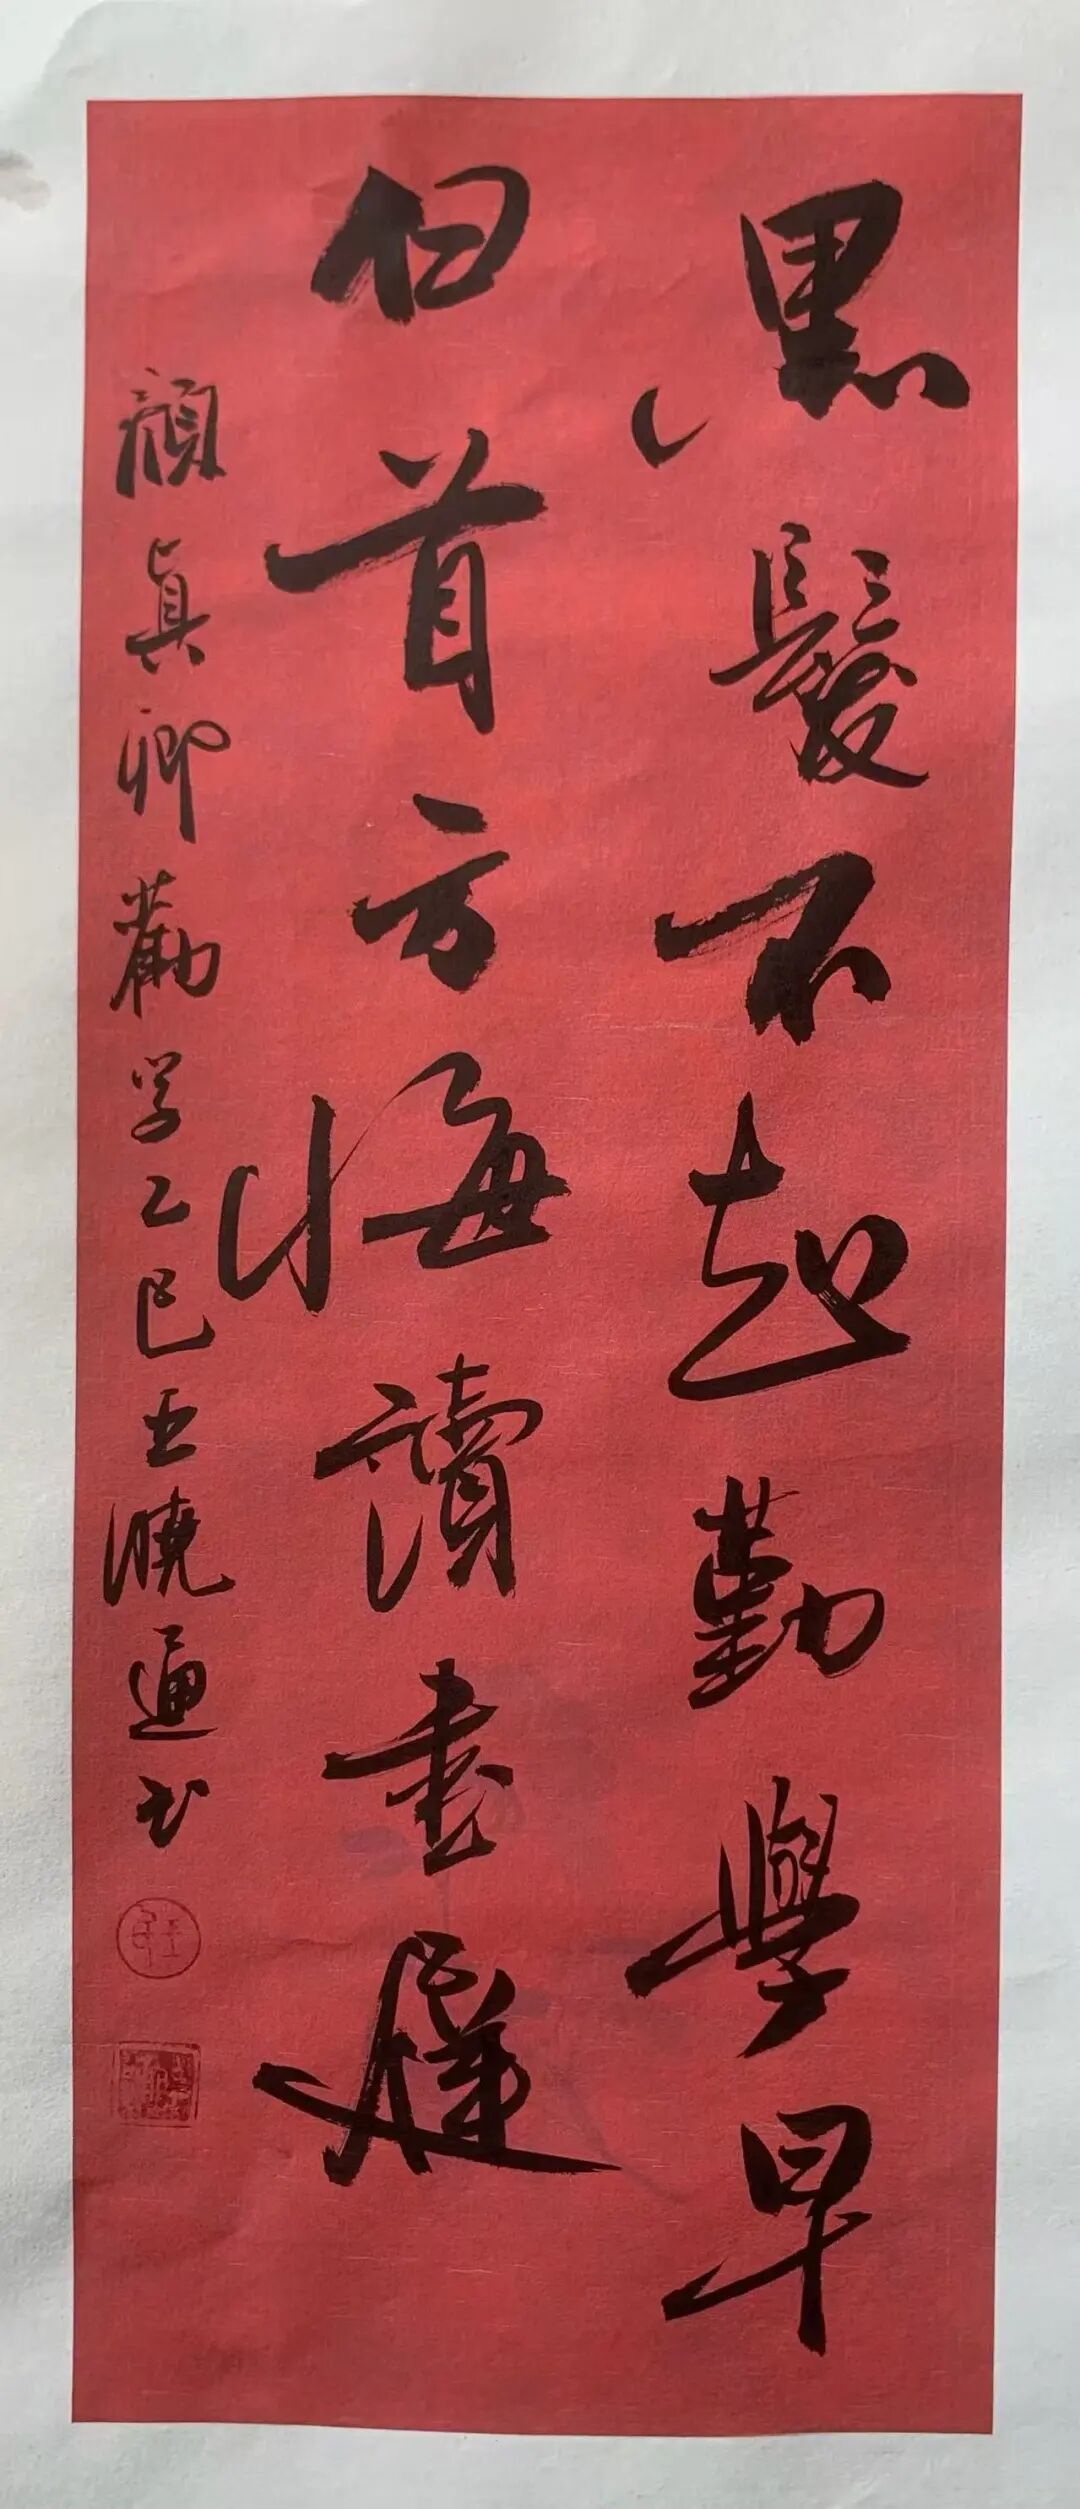 黑髮不知勤學早
白首方悔讀書遲
顏真卿勸学乙巳王曉通书